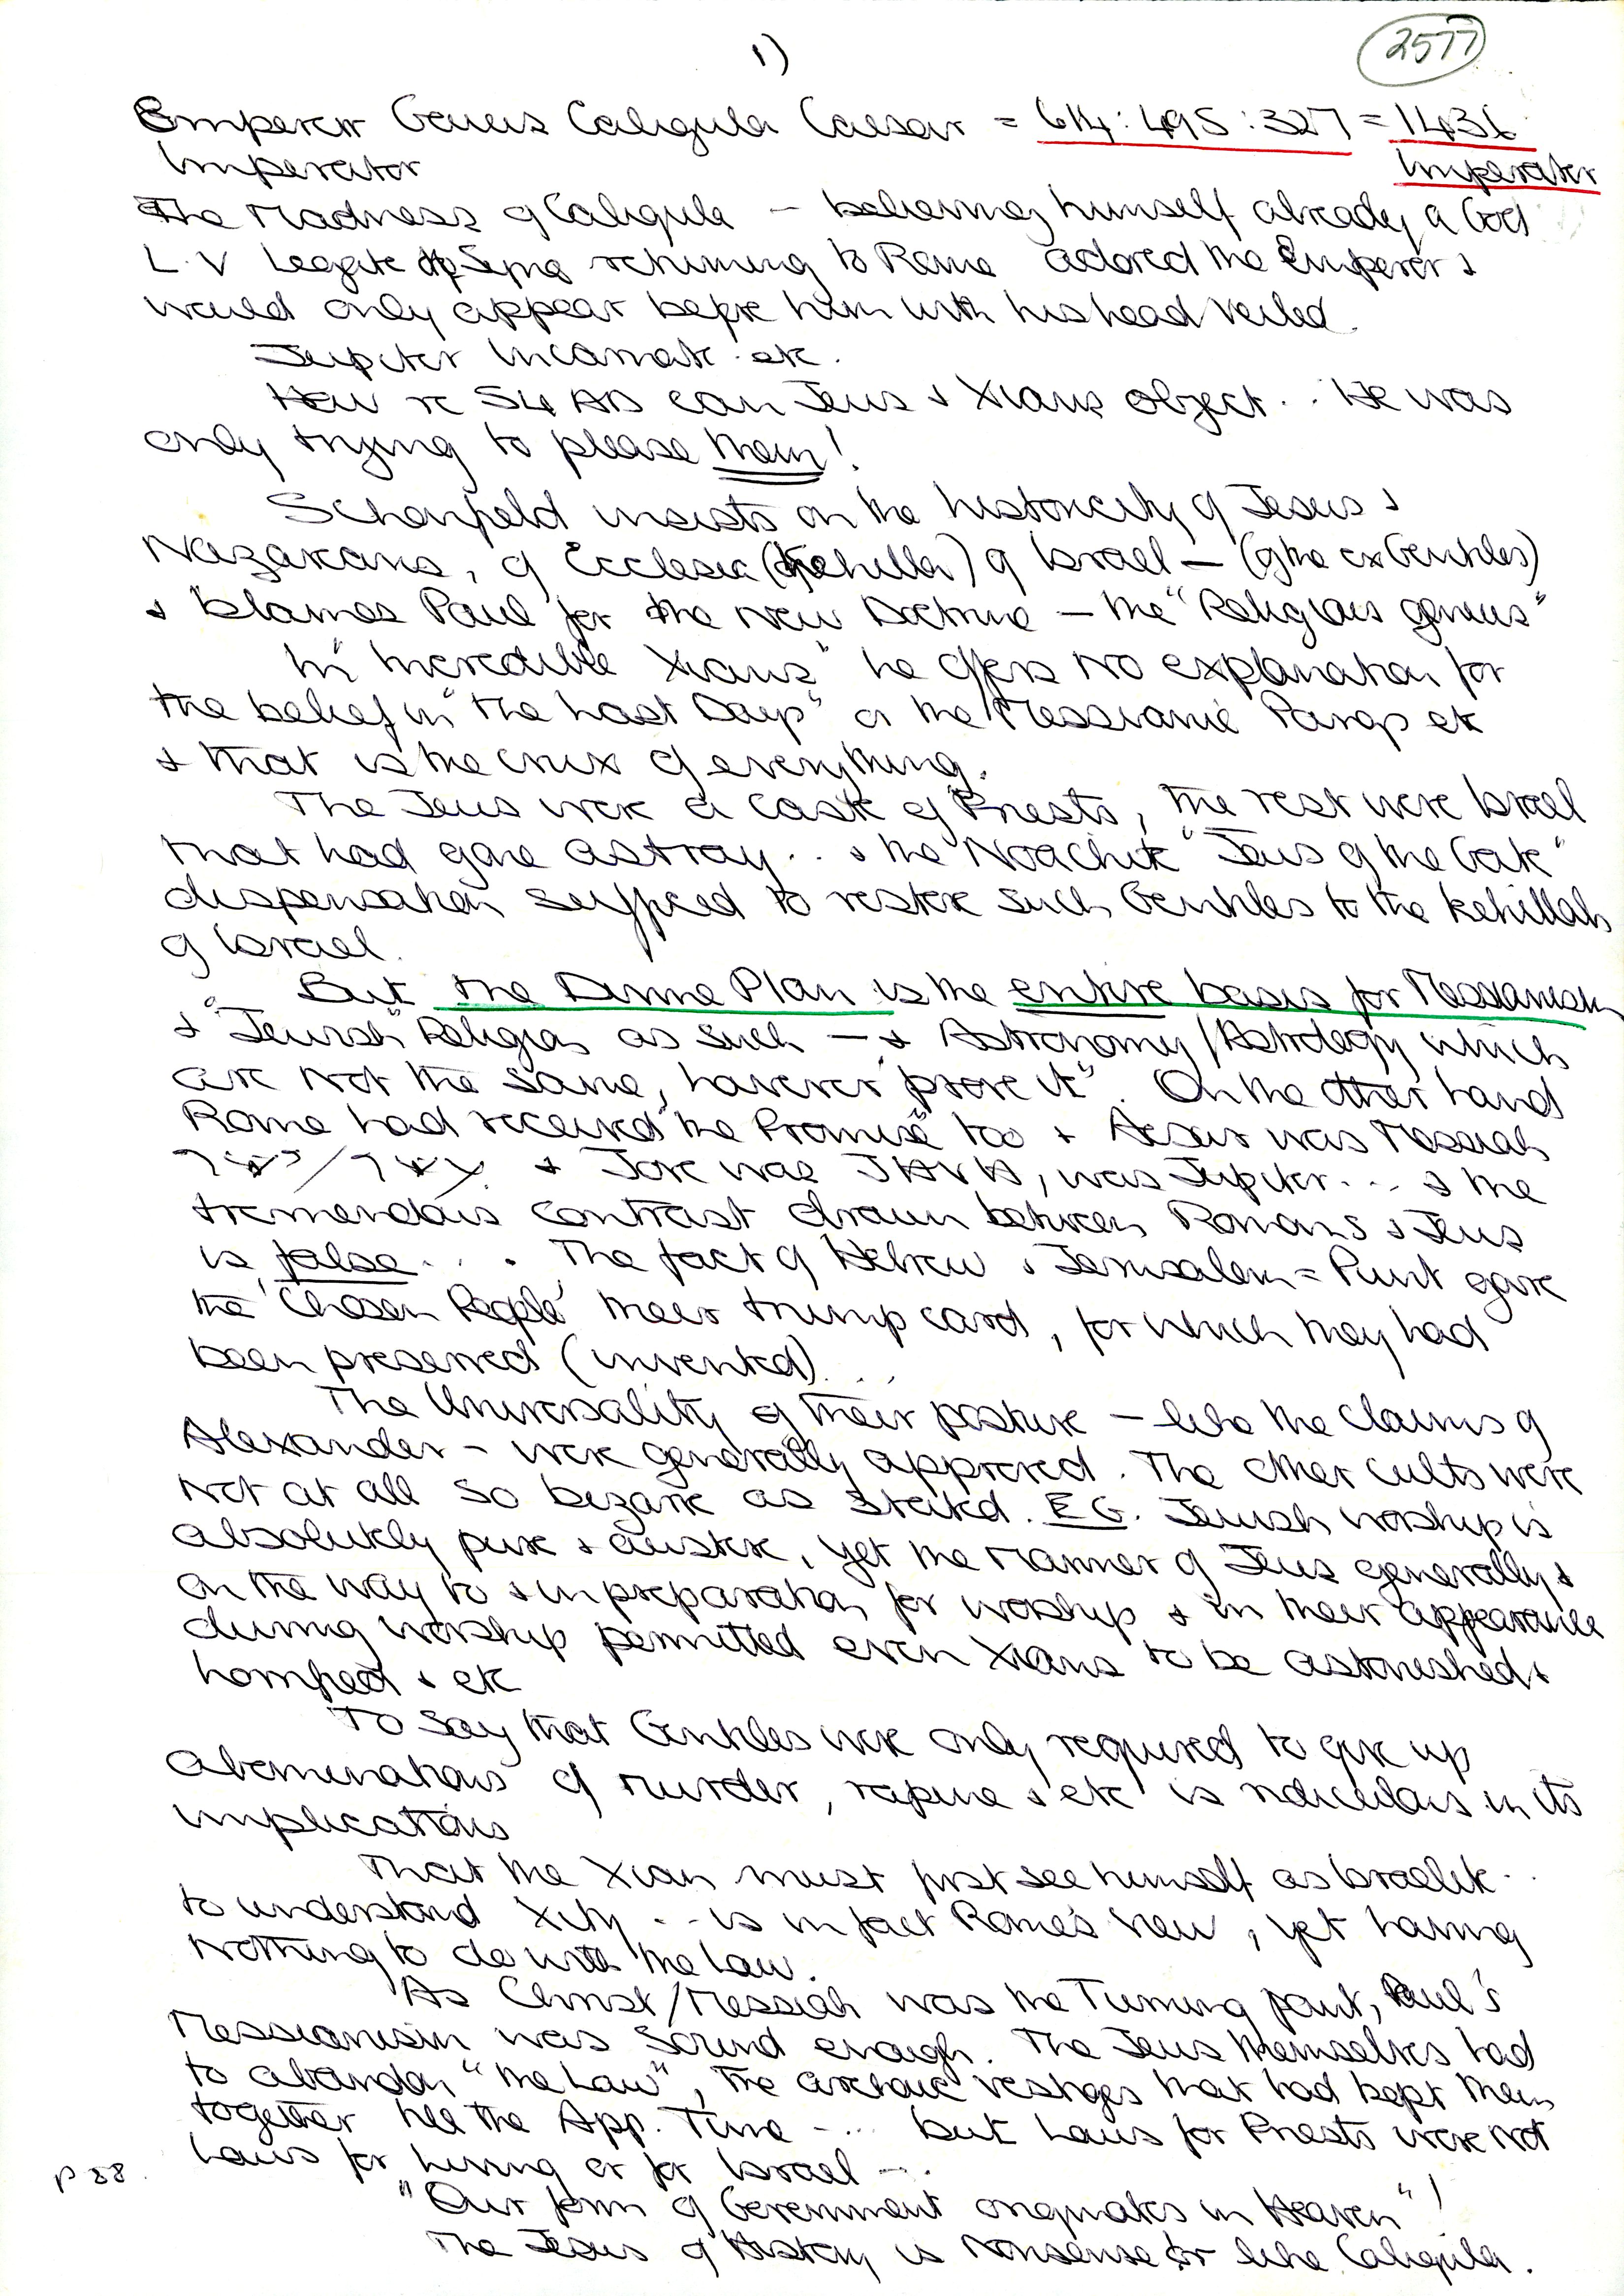 1)
2577
Emperor Gaius Caligula Caesar = 614:495:327 = 1436
Imperator Imperator
The Madness of Caligula – believing himself already a God
L.V Legate of Syria returning to Rome adored the Emperor &
would only appear before him with his head veiled.
Jupiter Incarnate etc.
How re 54 AD can Jews & Xians object.. He was
only trying to please them!
Schonfeld insists on the historicity of Jesus &
Nazareans, of Ecclesia (Kehilla) of Israel – (of the ex Gentiles)
& blames Paul for the new Doctrine – the "Religious genius"
In "Incredible Xians" he offers no explanation for
the belief in "the Last Days" or the Messianic Pangs etc
& that is the crux of everything.
The Jews were a caste of Priests, the rest were Israel
that had gone astray... & the "Noachite" "Jews of the Gate"
dispensation sufficed to restore such Gentiles to the Kehillah
of Israel.
But the Divine Plan is the entire basis for Messianism
& "Jewish" Religion as such – & Astronomy/Astrology which
are not the same, however "prove it". On the other hand
Rome had received "the Promise" too & Aesar was Messiah
& Jove was JHVH, was Jupiter... & the
tremendous contrast drawn between Romans & Jews
is false... The fact of Hebrew & Jerusalem = Punt gave
the 'Chosen People' their trump card, for which they had
been preserved (invented)...
The Universality of their posture – like the claims of
Alexander – were generally approved. The other cults were
not at all so bizarre as stated. E.G. Jewish worship is
absolutely pure & austere, yet the manner of Jews generally &
on the way to & in preparation for worship & in their appearance
during worship permitted even Xians to be astonished &
horrified & etc
To say that Gentiles were only required to give up
abominations of murder, rapine & etc is ridiculous in its
implications
That the Xian must first see himself as Israelite..
to understand Xity .. is in fact Rome's view, yet having
nothing to do with the Law.
As Christ/Messiah was the Turning point, Paul's
Messianism was sound enough. The Jews themselves had
to abandon "the Law", the archaic vestiges that had kept them
together till the App. Time -... but Laws for Priests were not
Laws for living or for Israel -..
p 88.
"Our form of Government originates in Heaven"!
The Jesus of History is nonsense or like Caligula.